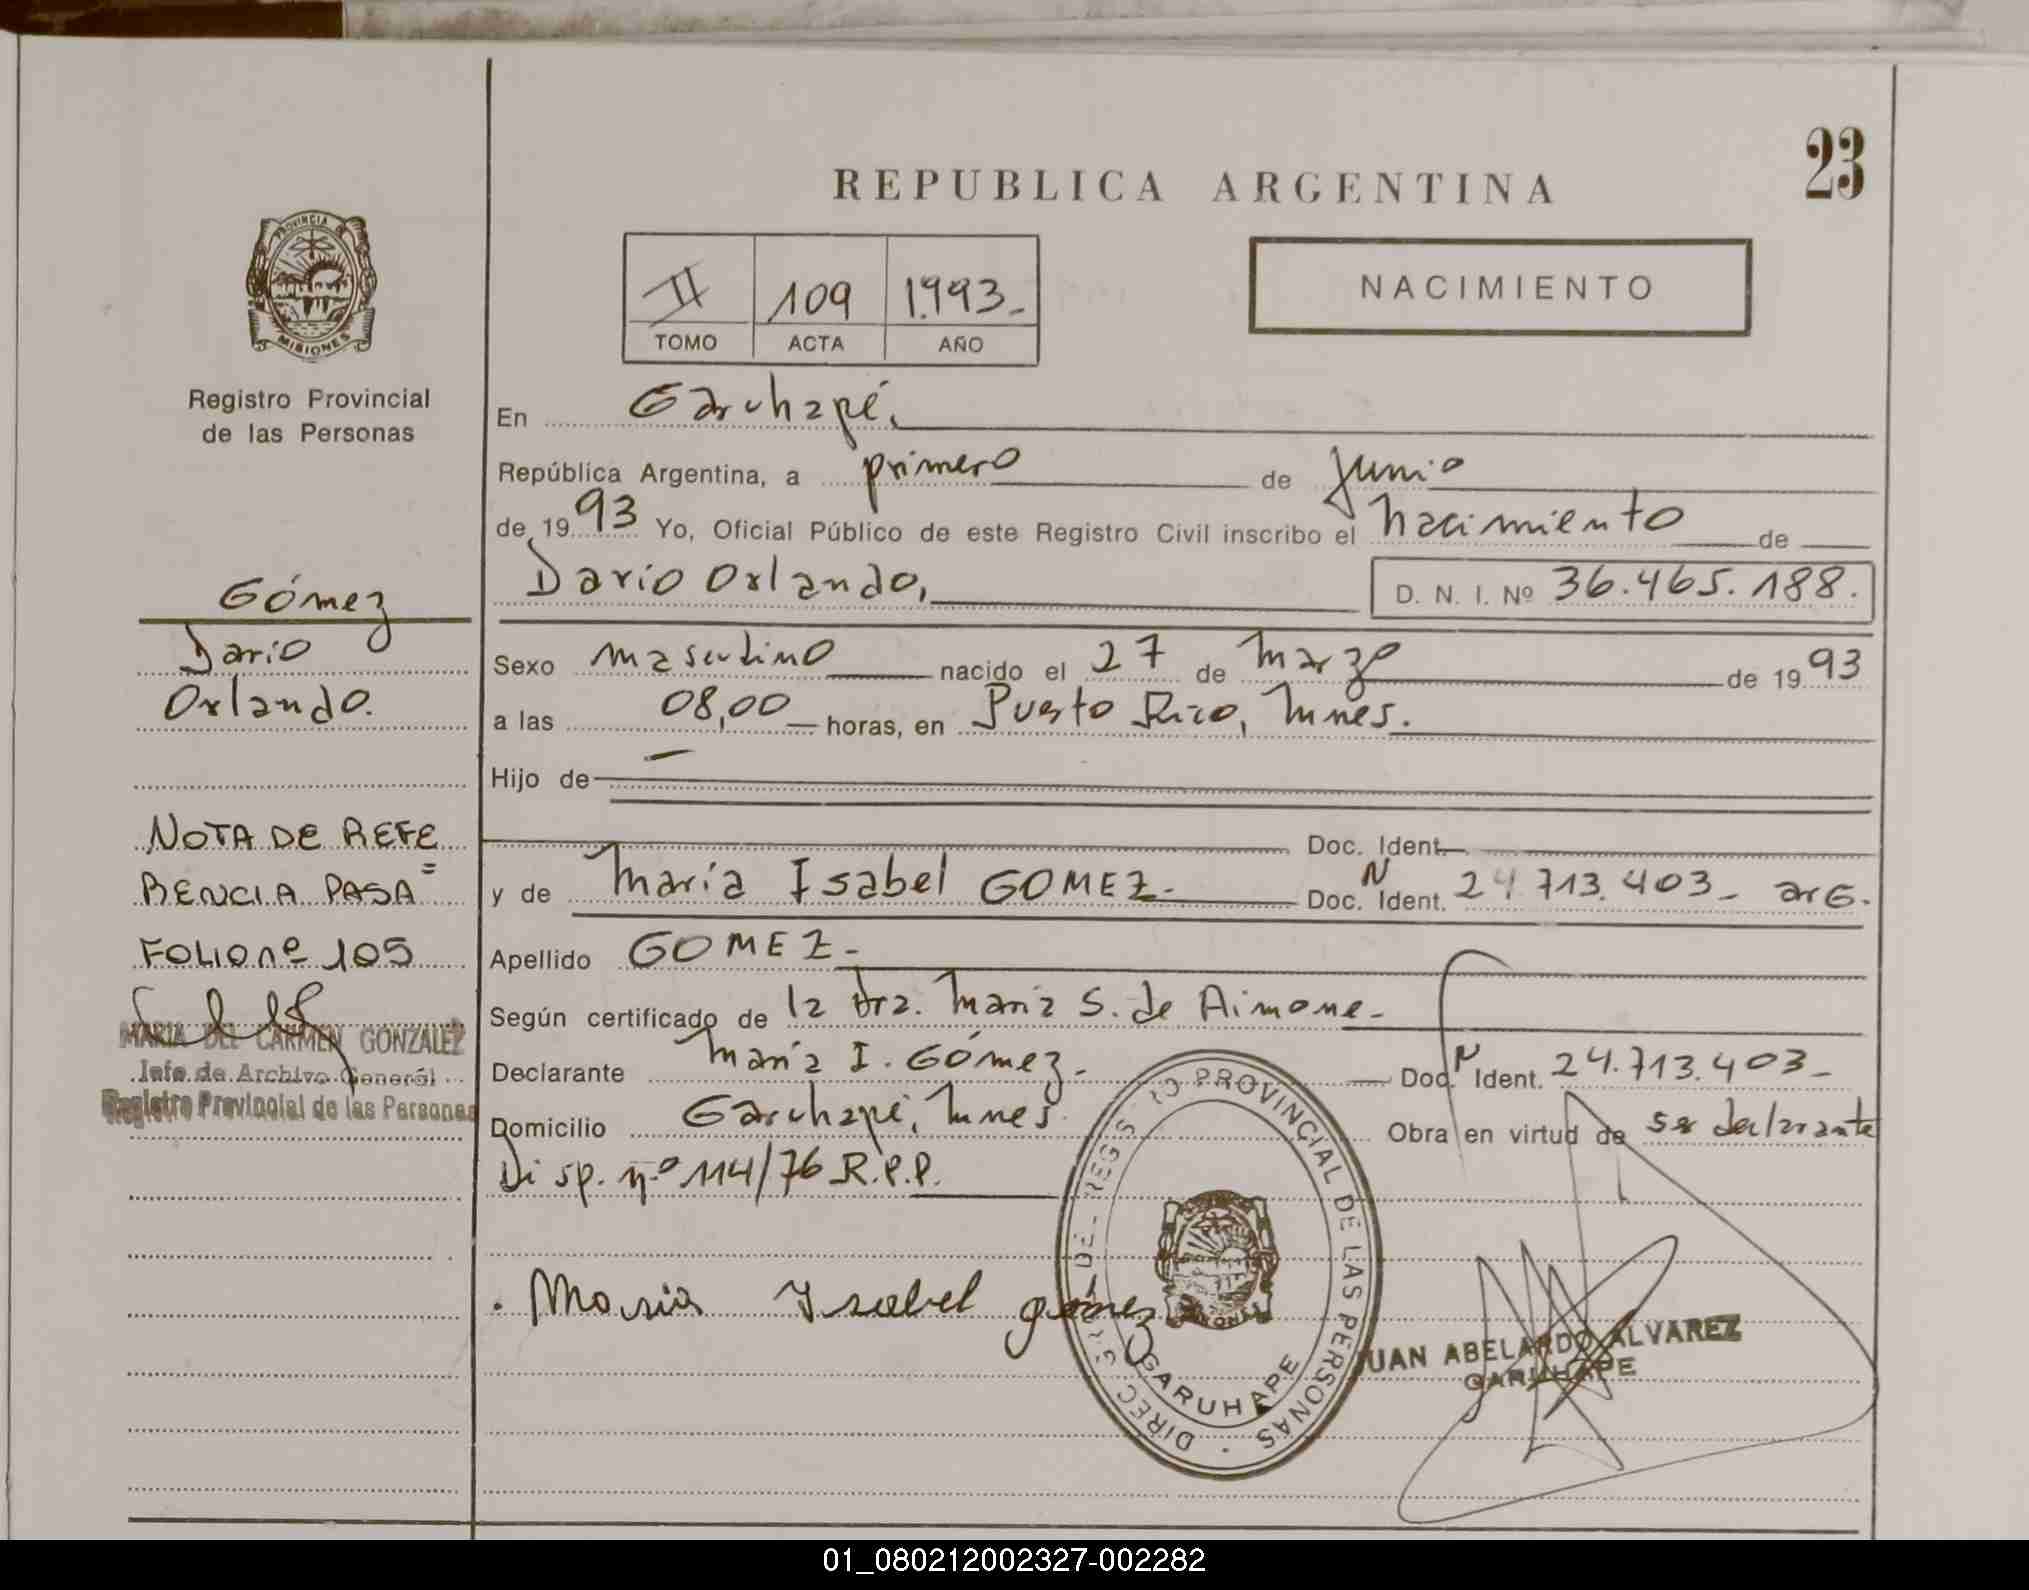 23
REPUBLICA ARGENTINA
PROVINCIA DE
MISIONES
II 109 1.993.-
TOMO ACTA AÑO
NACIMIENTO
Registro Provincial
de las Personas
En Garuhapé,
República Argentina, a primero de Junio
de 19 93 Yo, Oficial Público de este Registro Civil inscribo el Nacimiento de
Dario Orlando, D. N. I. Nº 36.465.188.
Gómez
Dario
Orlando.
Sexo masculino nacido el 27 de Marzo de 19 93
a las 08,00 horas, en Puerto Rico, Mnes.
Hijo de
Doc. Ident.
y de Maria Isabel GOMEZ.- Doc. N Ident. 24.713.403- arG.
NOTA DE REFE
RENCIA PASA =
FOLIO nº 105
MARIA DEL CARMEN GONZALEZ
Jefe de Archivo General
Registro Provincial de las Personas
Apellido GOMEZ-
Según certificado de la Dra. Maria S. de Aimone-
Declarante Maria I. Gómez- Doc. N Ident. 24.713.403-
Domicilio Garuhapé, Mnes. Obra en virtud de ser declarante
Disp. nº 114/76 R.P.P.
Maria Ysabel gomez
DIREC. GRAL. DE REGISTRO PROVINCIAL DE LAS PERSONAS
GARUHAPE
JUAN ABELARDO ALVAREZ
GARUHAPE
01_080212002327-002282